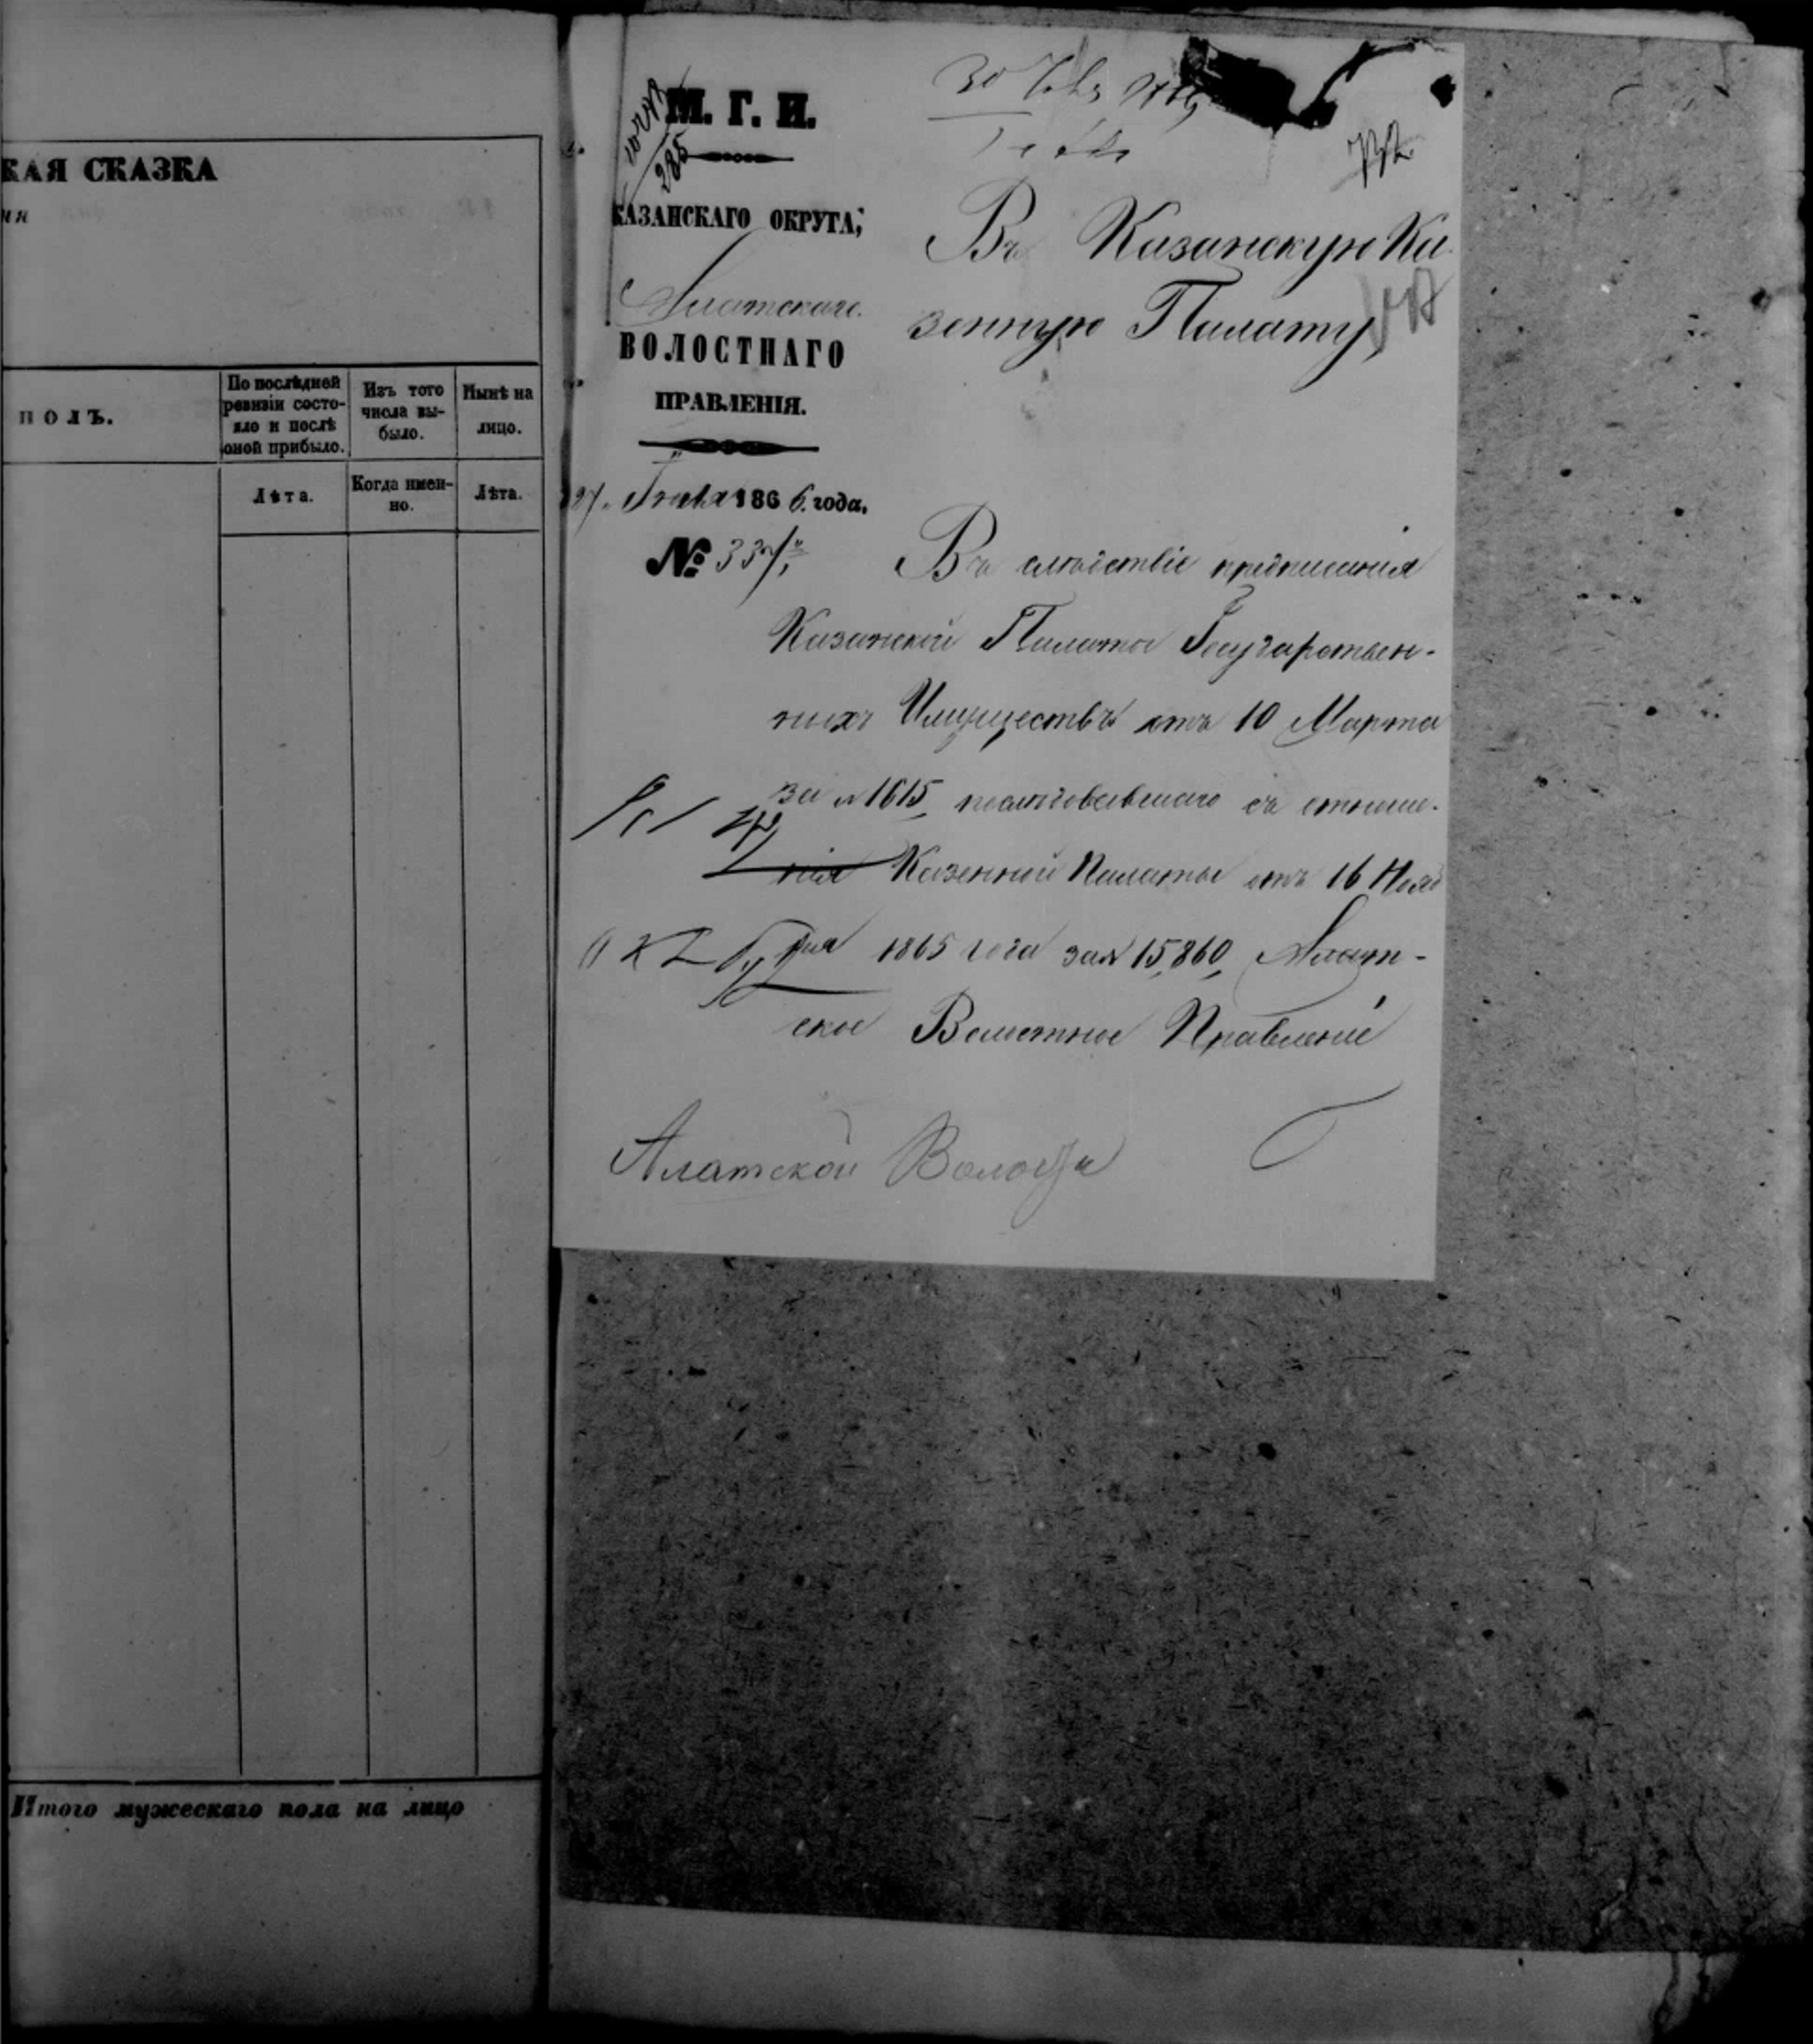 КАЯ СКАЗКА
ПОЛЪ.
По послѣдней
ревизіи состо-
яло и послѣ
оной прибыло.
Изъ того
числа вы-
было.
Нынѣ на
лицо.
Лѣта.
Когда имен-
но.
Лѣта.
Итого мужескаго пола на лицо
М. Г. И.
285
КАЗАНСКАГО ОКРУГА,
Алатскаго
ВОЛОСТНАГО
ПРАВЛЕНІЯ.
27 1866 года.
№ 337
Въ Казанскую Ка-
зенную Палату,
Въ слѣдствіе предписанія
Казанской Палаты Государствен-
ныхъ Имуществъ отъ 10 Марта
за № 1615, послѣдовавшаго съ отноше-
нія Казенной Палаты отъ 16 Нояб
ря 1865 года за № 15,860, Алат-
ское Волостное Правленіе
Алатской Волости